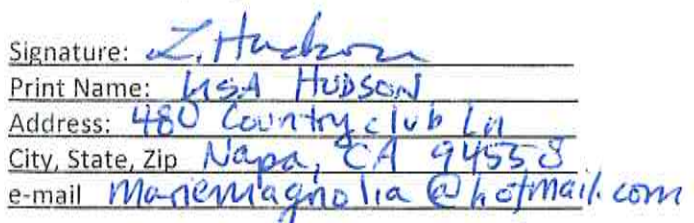 Signature: L. Hudson
Print Name: LISA HUDSON
Address: 480 Country club Ln
City, State, Zip Napa, CA 94558
e-mail mariemagnolia@hotmail.com